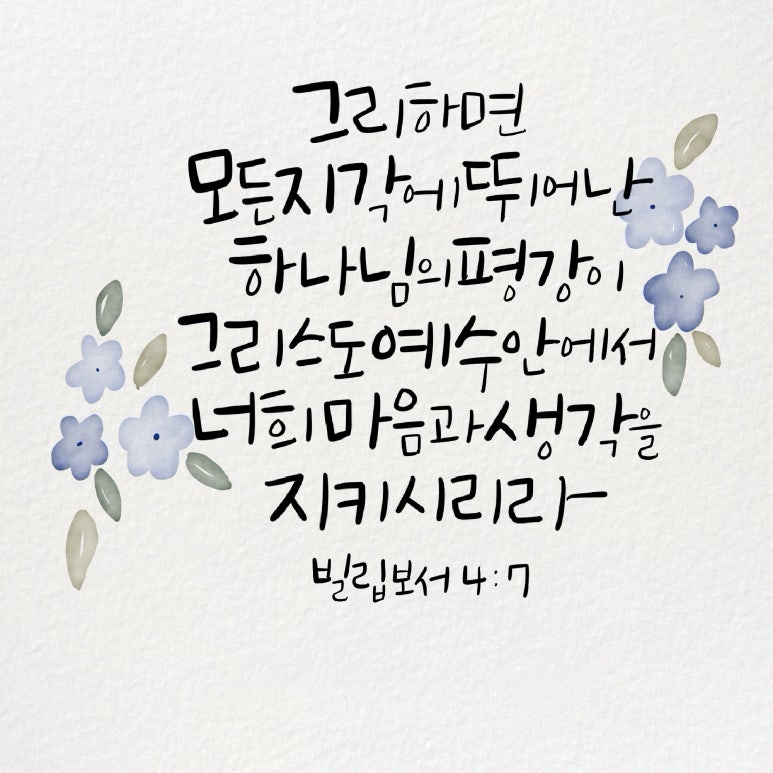 그리하면
모든 지각에 뛰어난
하나님의 평강이
그리스도 예수 안에서
너희 마음과 생각을
지키시리라
빌립보서 4:7